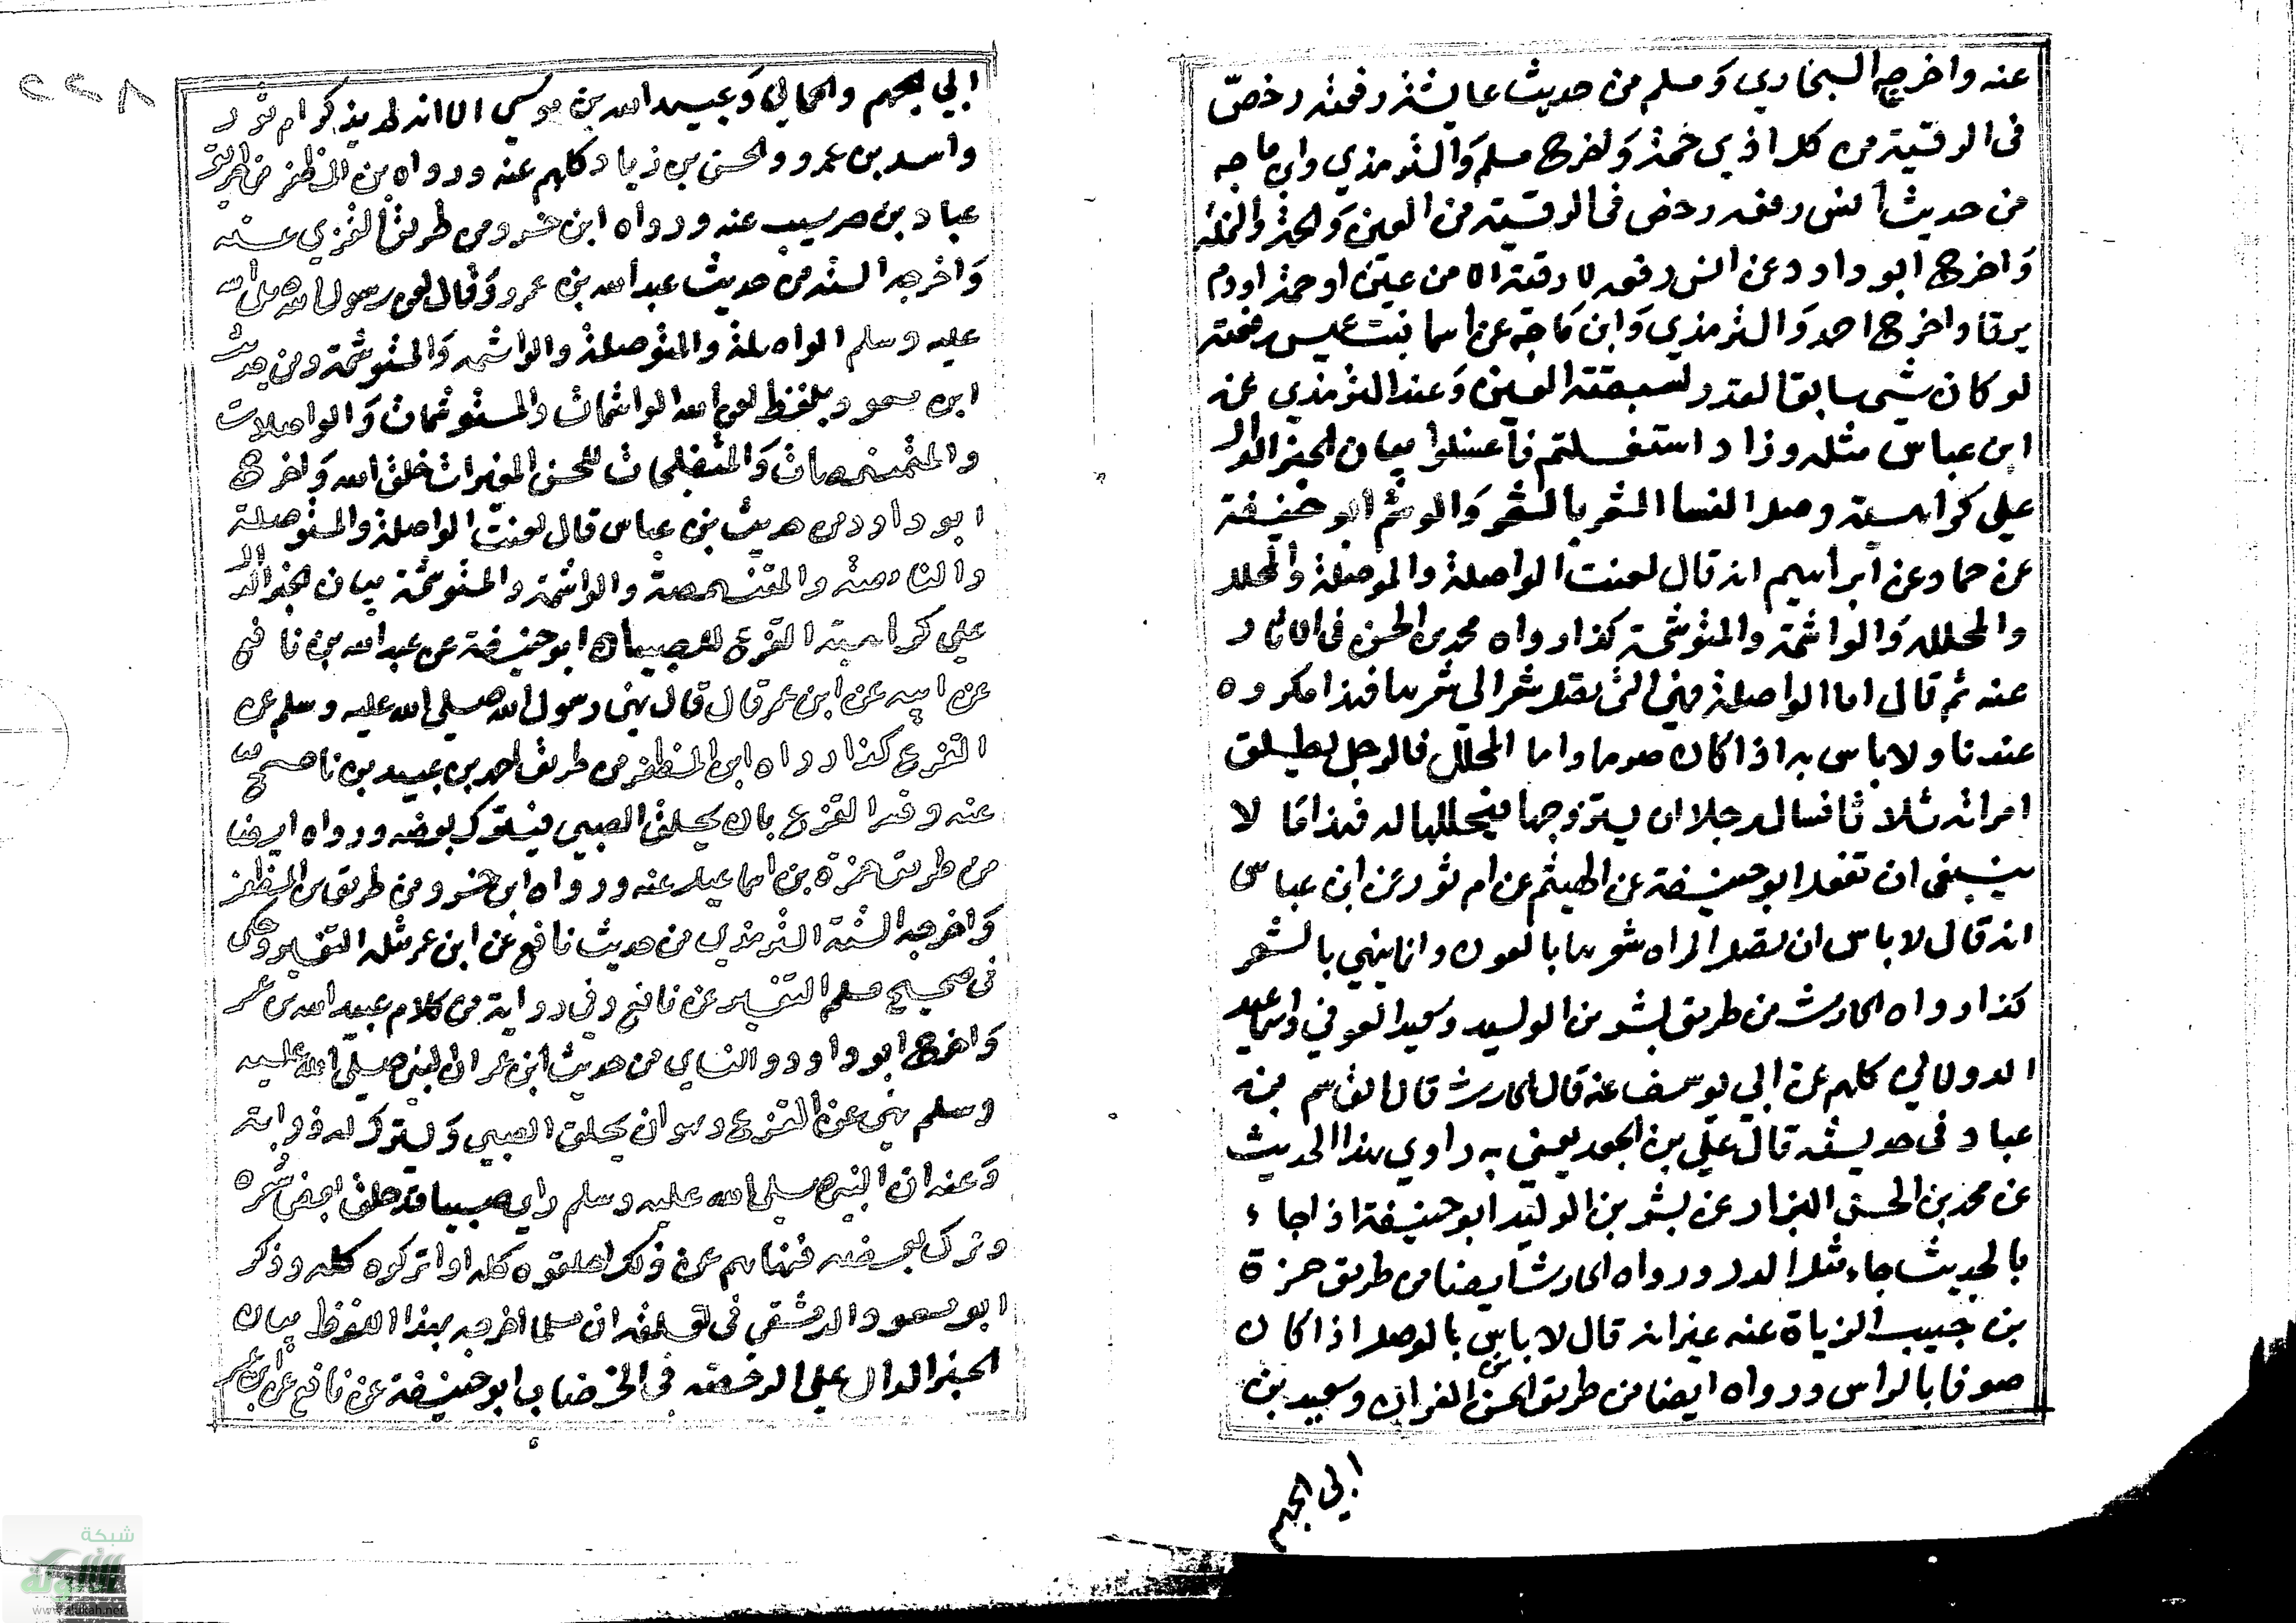 عنه واخرجه البخاري ومسلم من حديث عايشة رفعته رخص
في الرقية من كل ذي حمة واخرج مسلم والترمذي وابن ماجه
من حديث انس رفعه رخص في الرقية من العين والحمة والنملة
واخرج ابو داود عن انس رفعه لا رقية الا من عين او حمة او دم
يرقا واخرج احمد والترمذي وابن ماجة عن اسما بنت عميس رفعته
لو كان شي سابق القدر لسبقته العين وعند الترمذي عن
ابن عباس مثله وزاد استغسلتم فاغسلوا بيان الخبر الدال
علي كراهية وصل النسا الشعر بالشعر والوشم ابو حنيفة
عن حماد عن ابراهيم انه قال لعنت الواصلة والموصلة والمحلل
والمحلل له والواشمة والمتوشمة كذا رواه محمد بن الحسن في الاثار
عنه ثم قال اما الواصلة فهي التي تصل شعرا الي شعرها فهذا مكروه
عندنا ولا باس به اذا كان صوفا واما المحلل فالرجل يطلق
امراته ثلاثا فسال رجلا ان يتزوجها فيحللها له فهذا لا
ينبغي ان تفعل ابو حنيفة عن الهيثم عن ام ثور عن ابن عباس
انه قال لا باس ان تصل المراه شعرها بالصوف وانما ينهي بالشعر
كذا رواه الحارث من طريق بشر بن الوليد وسعيد العوفي واسماعيل
الدولابي كلهم عن ابي يوسف عنه قال الحارث قال القاسم بن
عباد في حديثه قال علي بن الجعد يعني به راوي هذا الحديث
عن محمد بن الحسن البزار عن بشر بن الوليد ابو حنيفة اذا جاء
بالحديث جاء مثل الدر ورواه الحارث ايضا من طريق حمزة
بن حبيب الزياة عنه غير انه قال لا باس بالوصل اذا كان
صوفا بالراس ورواه ايضا من طريق الحسن بن الفرات وسعيد بن
ابي الجهم
٢٢٨
ابي الجهم والحماني وعبيد الله بن موسي الا انه لم يذكر ام ثور
واسد بن عمرو والحسن بن زياد كلهم عنه ورواه بن المظفر من طريق
عباد بن صهيب عنه ورواه ابن خسرو من طريق المقري عنه
واخرجه الستة من حديث عبد الله بن عمر وقال لعن رسول الله صلى الله
عليه وسلم الواصلة والمتوصلة والواشمه والمتوشمة ومن حديث
ابن مسعود بلفظ لعن الله الواشمات والمستوشمات والواصلات
والمتنمصات والمتفلجات للحسن المغيرات خلق الله واخرج
ابو داود من حديث بن عباس قال لعنت الواصلة والمستوصلة
والنامصة والمتنمصة والواشمة والمستوشمة بيان الخبر الدال
علي كراهية القزع للصبيان ابو حنيفة عن عبد الله بن نافع
عن ابيه عن ابن عمر قال قال نهي رسول الله صلي الله عليه وسلم عن
القزع كذا رواه ابن المظفر من طريق احمد بن عبيد بن ناصح
عنه وفسر القزع بان يحلق الصبي فيترك بعضه ورواه ايضا
من طريق حمزة بن اسماعيل عنه ورواه ابن خسرو من طريق بن المظفر
واخرجه الستة الترمذي من حديث نافع عن ابن عمر مثله التفسير وحكي
في صحيح مسلم التفسير عن نافع وفي رواية من كلام عبيد الله بن عمر
واخرج ابو داود والنساي من حديث ابن عمر ان النبي صلي الله عليه
وسلم نهي عن القزع وهو ان يحلق الصبي ويترك له ذوابة
وعنه ان النبي صلي الله عليه وسلم راي صبيا قد حلق بعض شعره
وترك بعضه فنهاهم عن ذلك احلقوه كله او اتركوه كله وذكر
ابو مسعود الدمشقي في تعليقه ان مسلما اخرجه بهذا اللفظ بيان
الخبر الدال علي الرخصة في الخضاب ابو حنيفة عن نافع عن ابن عمر
شبكة
الألوكة
www.alukah.net